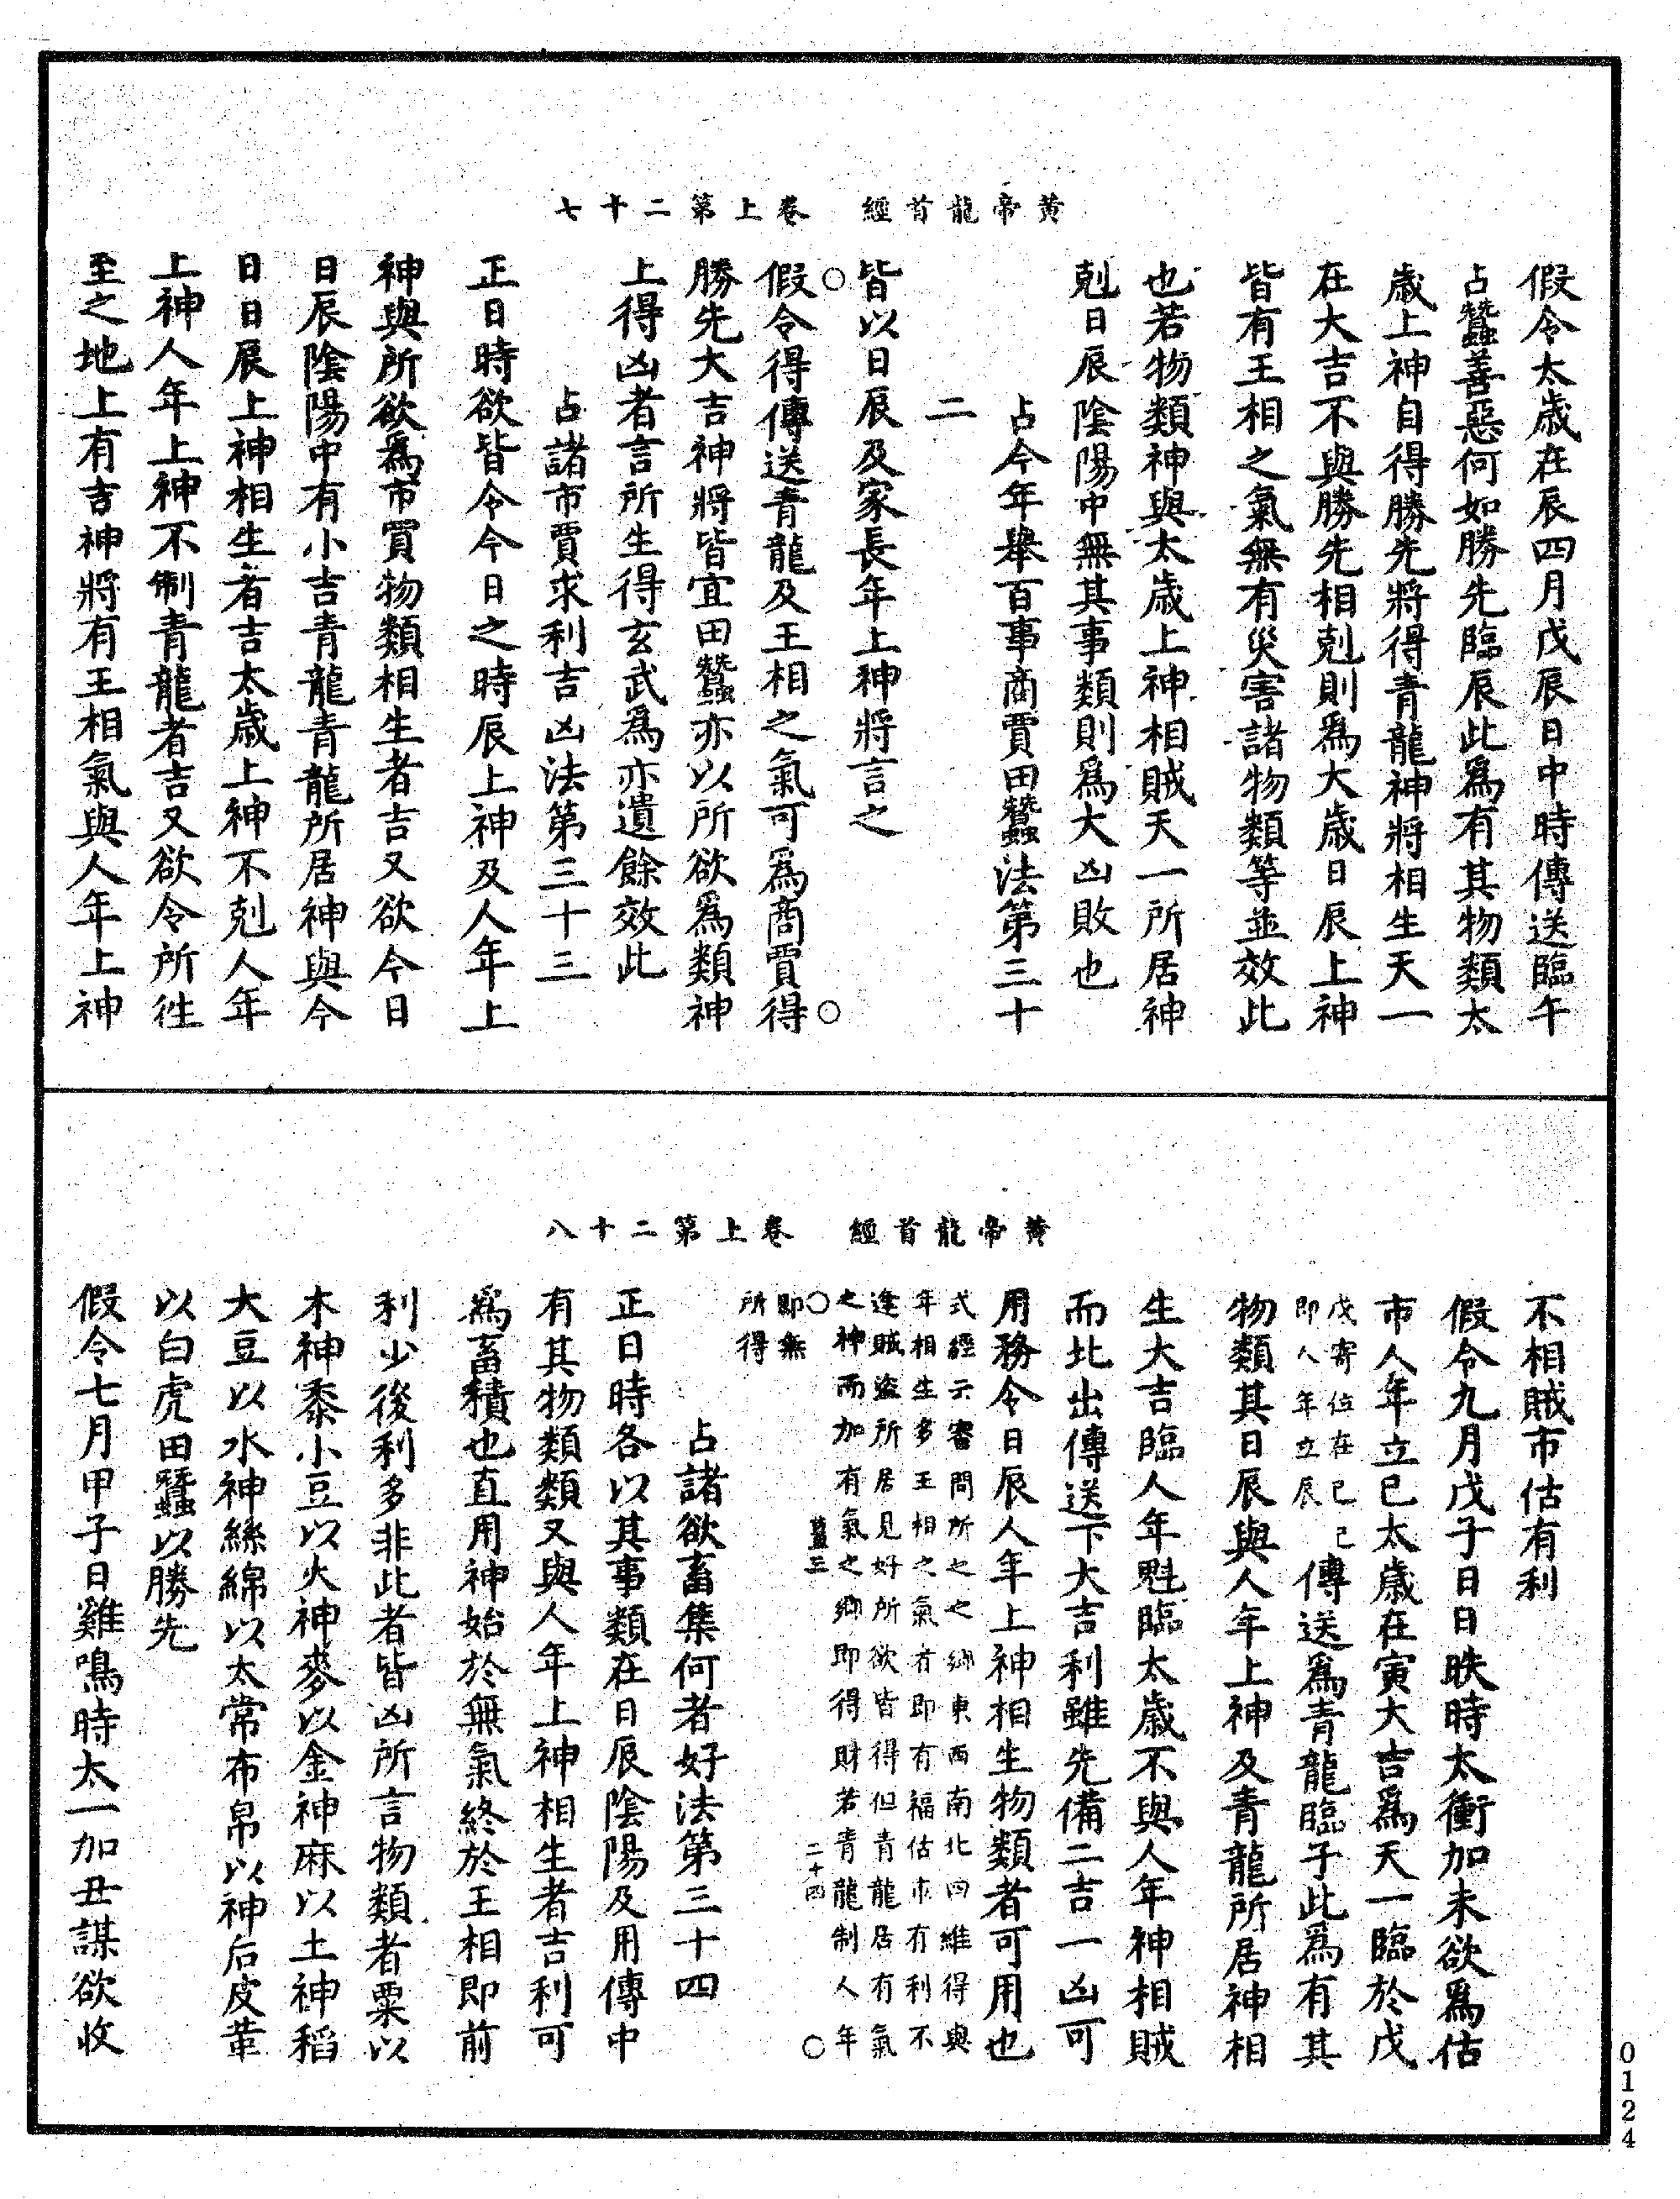 黃帝龍首經　卷上第二十七
假令太歲在辰四月戊辰日中時傳送臨午
占蠶善惡何如勝先臨辰此爲有其物類太
歲上神自得勝先將得青龍神將相生天一
在大吉不與勝先相剋則爲大歲日辰上神
皆有王相之氣無有災害諸物類等並效此
也若物類神與太歲上神相賊天一所居神
剋日辰陰陽中無其事類則爲大凶敗也
占今年舉百事商賈田蠶法第三十
二
皆以日辰及家長年上神將言之
假令得傳送青龍及王相之氣可爲商賈得
勝先大吉神將皆宜田蠶亦以所欲爲類神
上得凶者言所生得玄武爲亦遺餘效此
占諸市賈求利吉凶法第三十三
正日時欲皆令今日之時辰上神及人年上
神與所欲爲市買物類相生者吉又欲今日
日辰陰陽中有小吉青龍青龍所居神與今
日日辰上神相生者吉太歲上神不剋人年
上神人年上神不制青龍者吉又欲令所徃
至之地上有吉神將有王相氣與人年上神
黃帝龍首經　卷上第二十八
不相賊市估有利
假令九月戊子日日昳時太衝加未欲爲估
市人年立巳太歲在寅大吉爲天一臨於戊
戊寄位在巳巳
即人年立辰
傳送爲青龍臨子此爲有其
物類其日辰與人年上神及青龍所居神相
生大吉臨人年魁臨太歲不與人年神相賊
而北出傳送下大吉利雖先備二吉一凶可
用務令日辰人年上神相生物類者可用也
式經云審問所之之鄉東西南北四維得與
年相生多王相之氣者即有福估市有利不
逢賊盜所居見好所欲皆得但青龍居有氣
之神而加有氣之鄉即得財若青龍制人年
二十四
即無
所得
占諸欲畜集何者好法第三十四
正日時各以其事類在日辰陰陽及用傳中
有其物類類又與人年上神相生者吉利可
爲畜積也直用神始於無氣終於王相即前
利少後利多非此者皆凶所言物類者粟以
木神黍小豆以火神麥以金神麻以土神稻
大豆以水神絲綿以太常布帛以神后皮革
以白虎田蠶以勝先
假令七月甲子日雞鳴時太一加丑謀欲收
0124